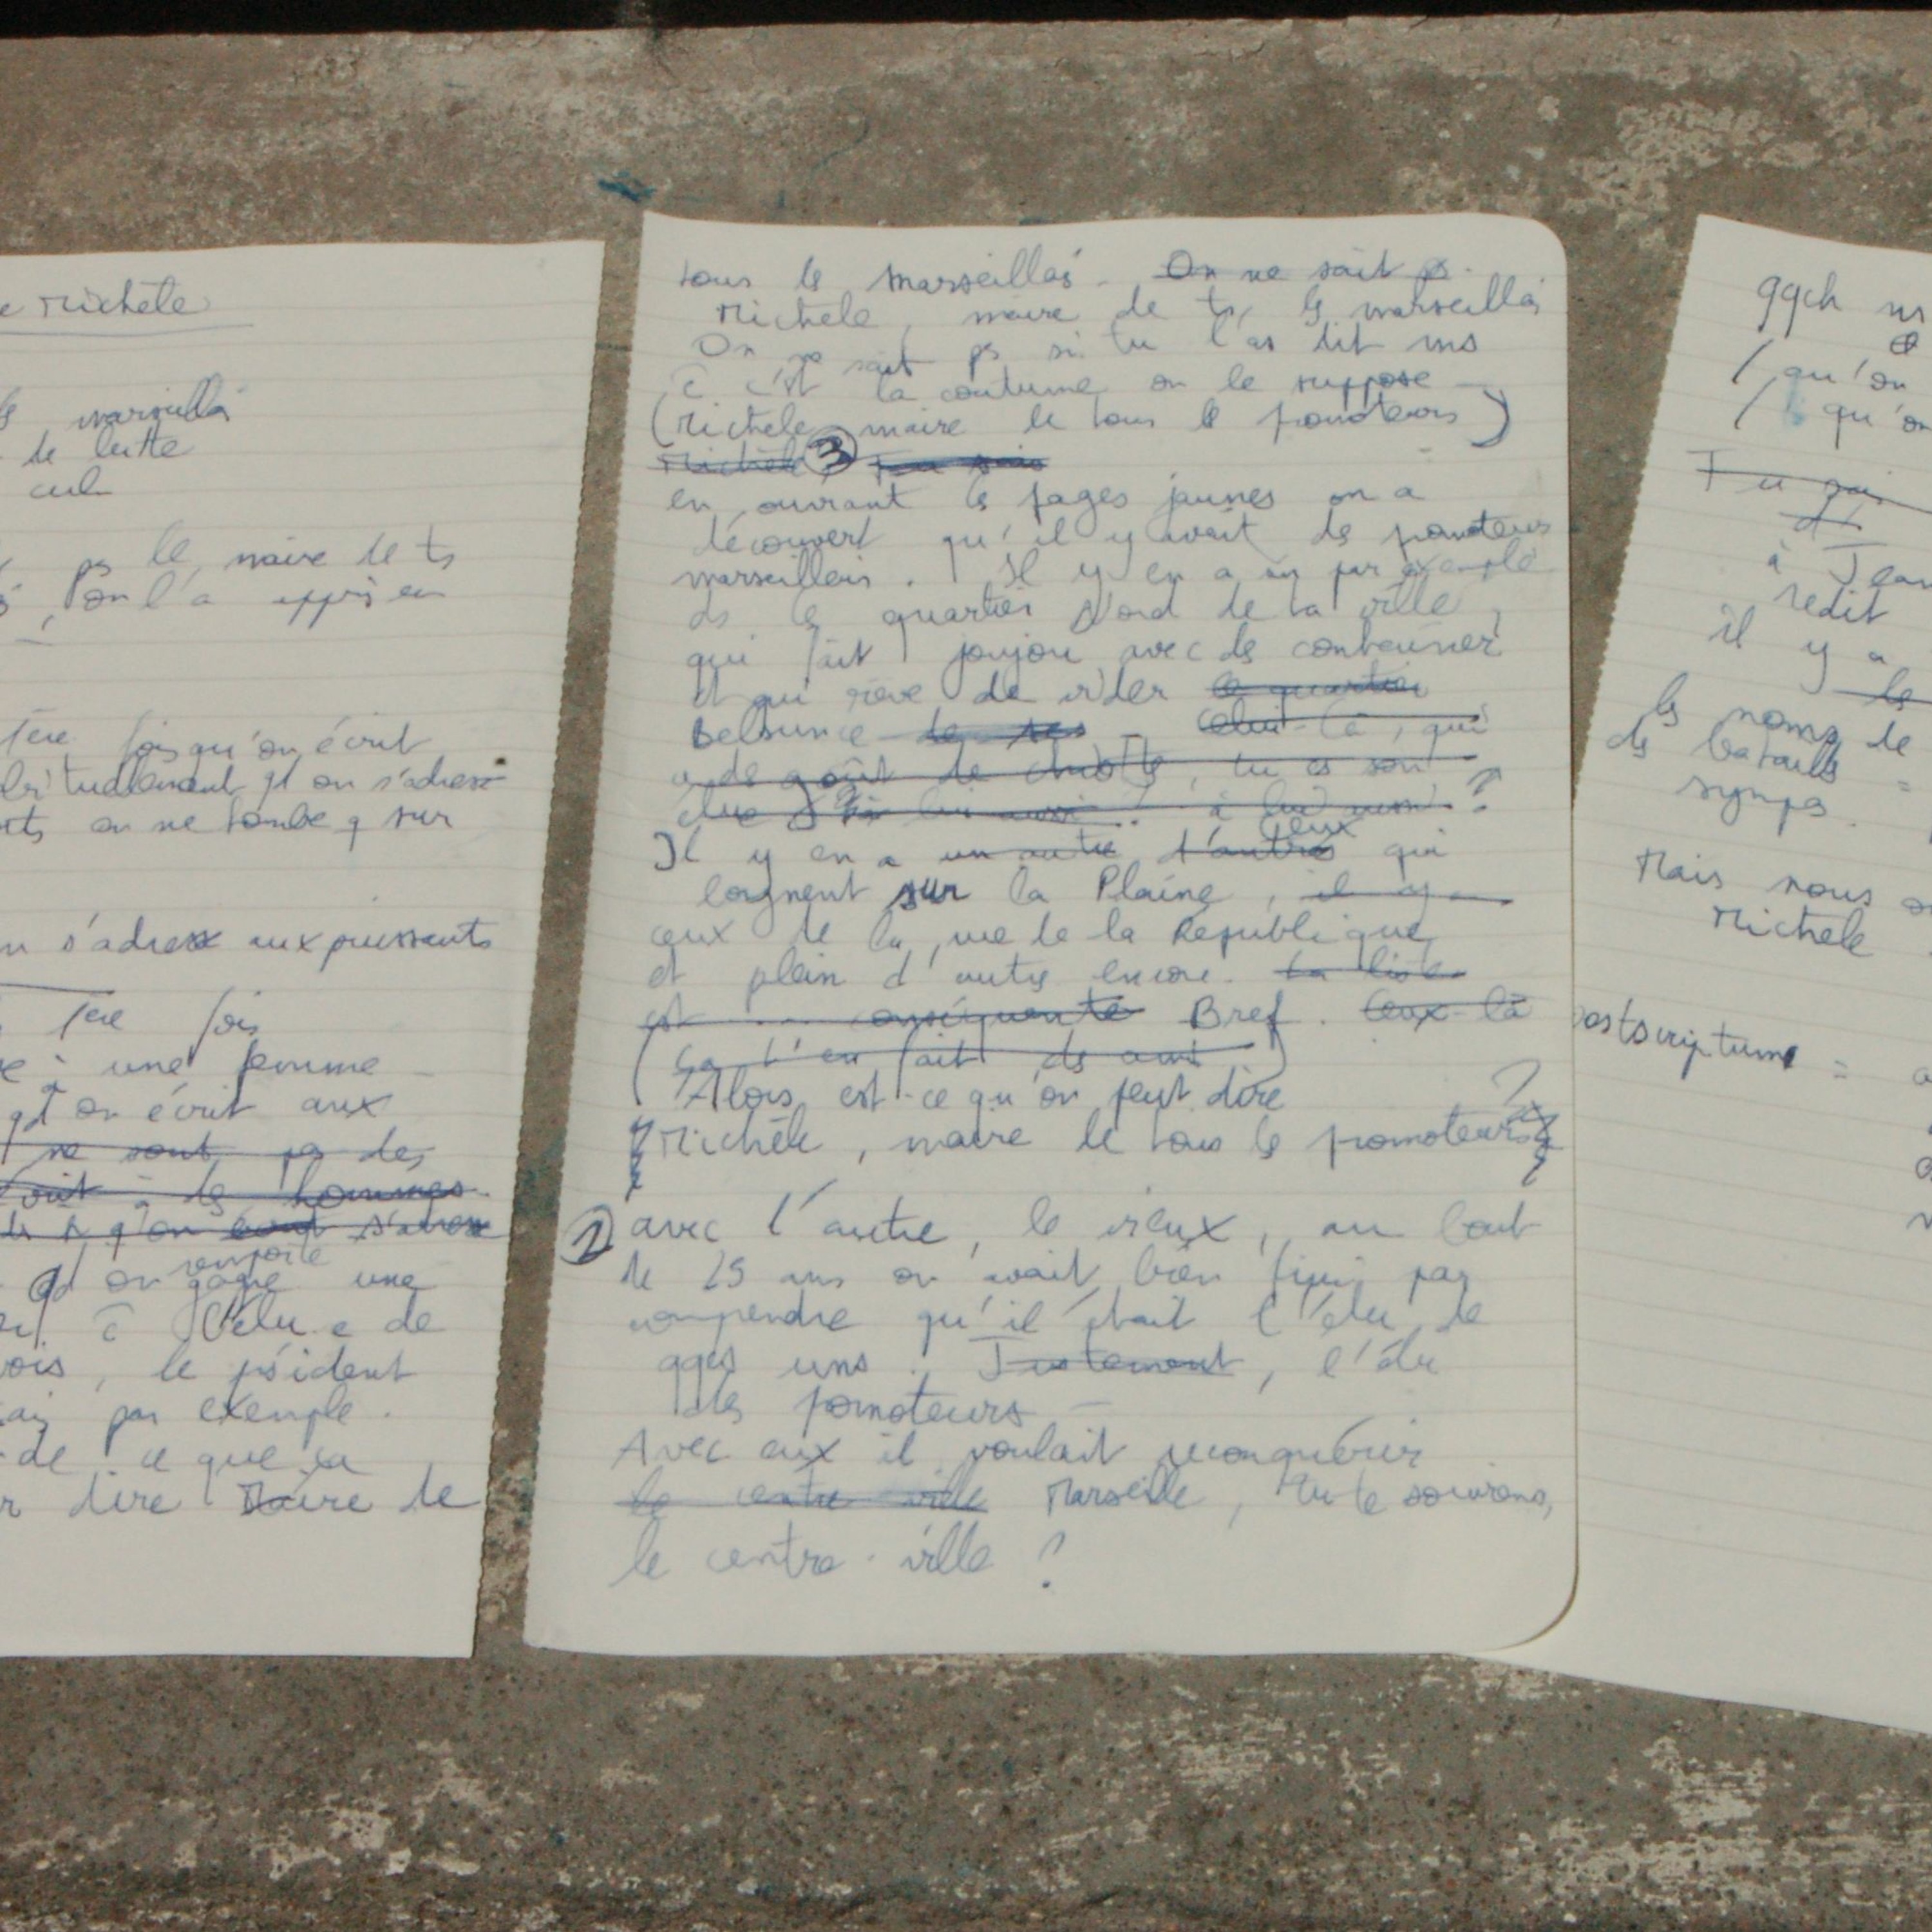 e Michèle
marseillais
de lutte
cul
ps le maire de ts
on l'a appris en
1ère fois qu'on écrit
bituellement qd on s'adresse
on ne tombe q sur
s'adresse aux puissants
1ère fois
à une femme
qd on écrit aux
ne sont ps des
les hommes
s'adresse
remporte
qd on gagne une
c̄ l'élu.e de
vois, le psident
par exemple.
de ce que ça
dire Maire de
tous les marseillais - On ne sait ps
Michèle, maire de ts les marseillais
On ne sait ps si tu l'as dit ms
c̄ c'est la coutume on le suppose -
(Michèle, maire de tous les pomoteurs)
Michèle ③ Tu sais
en ouvrant les pages jaunes on a
découvert qu'il y avait des pomoteurs
marseillais. Il y en a un par exemple
ds les quartiers Nord de la ville,
qui fait joujou avec des containers
et qui rêve de vider le quartier
Belsunce - Celui-là, qui
a de goût de chiotte, tu es son
élue à lui aussi ?
ceux
Il y en a un autre d'autres qui
lorgnent sur la Plaine, il y a
ceux de la rue de la République
et plein d'autres encore. La liste
est ... conséquente Bref. Ceux-là
(ça t'en fait des amis)
Alors est-ce qu'on peut dire
Michèle, maire de tous les promoteurs ?
② avec l'autre, le vieux, au bout
de 25 ans on avait bien fini par
comprendre qu'il était l'élu de
qqes uns. Justement, l'élu
des pomoteurs -
Avec eux il voulait reconquérir
le centre ville Marseille, tu te souviens,
le centre-ville ?
qqch
qu'on
qu'on
Tu
à Jean
redit
il y a
les
les noms de
des batailles =
sympa.
Mais nous
Michèle
postscriptum =